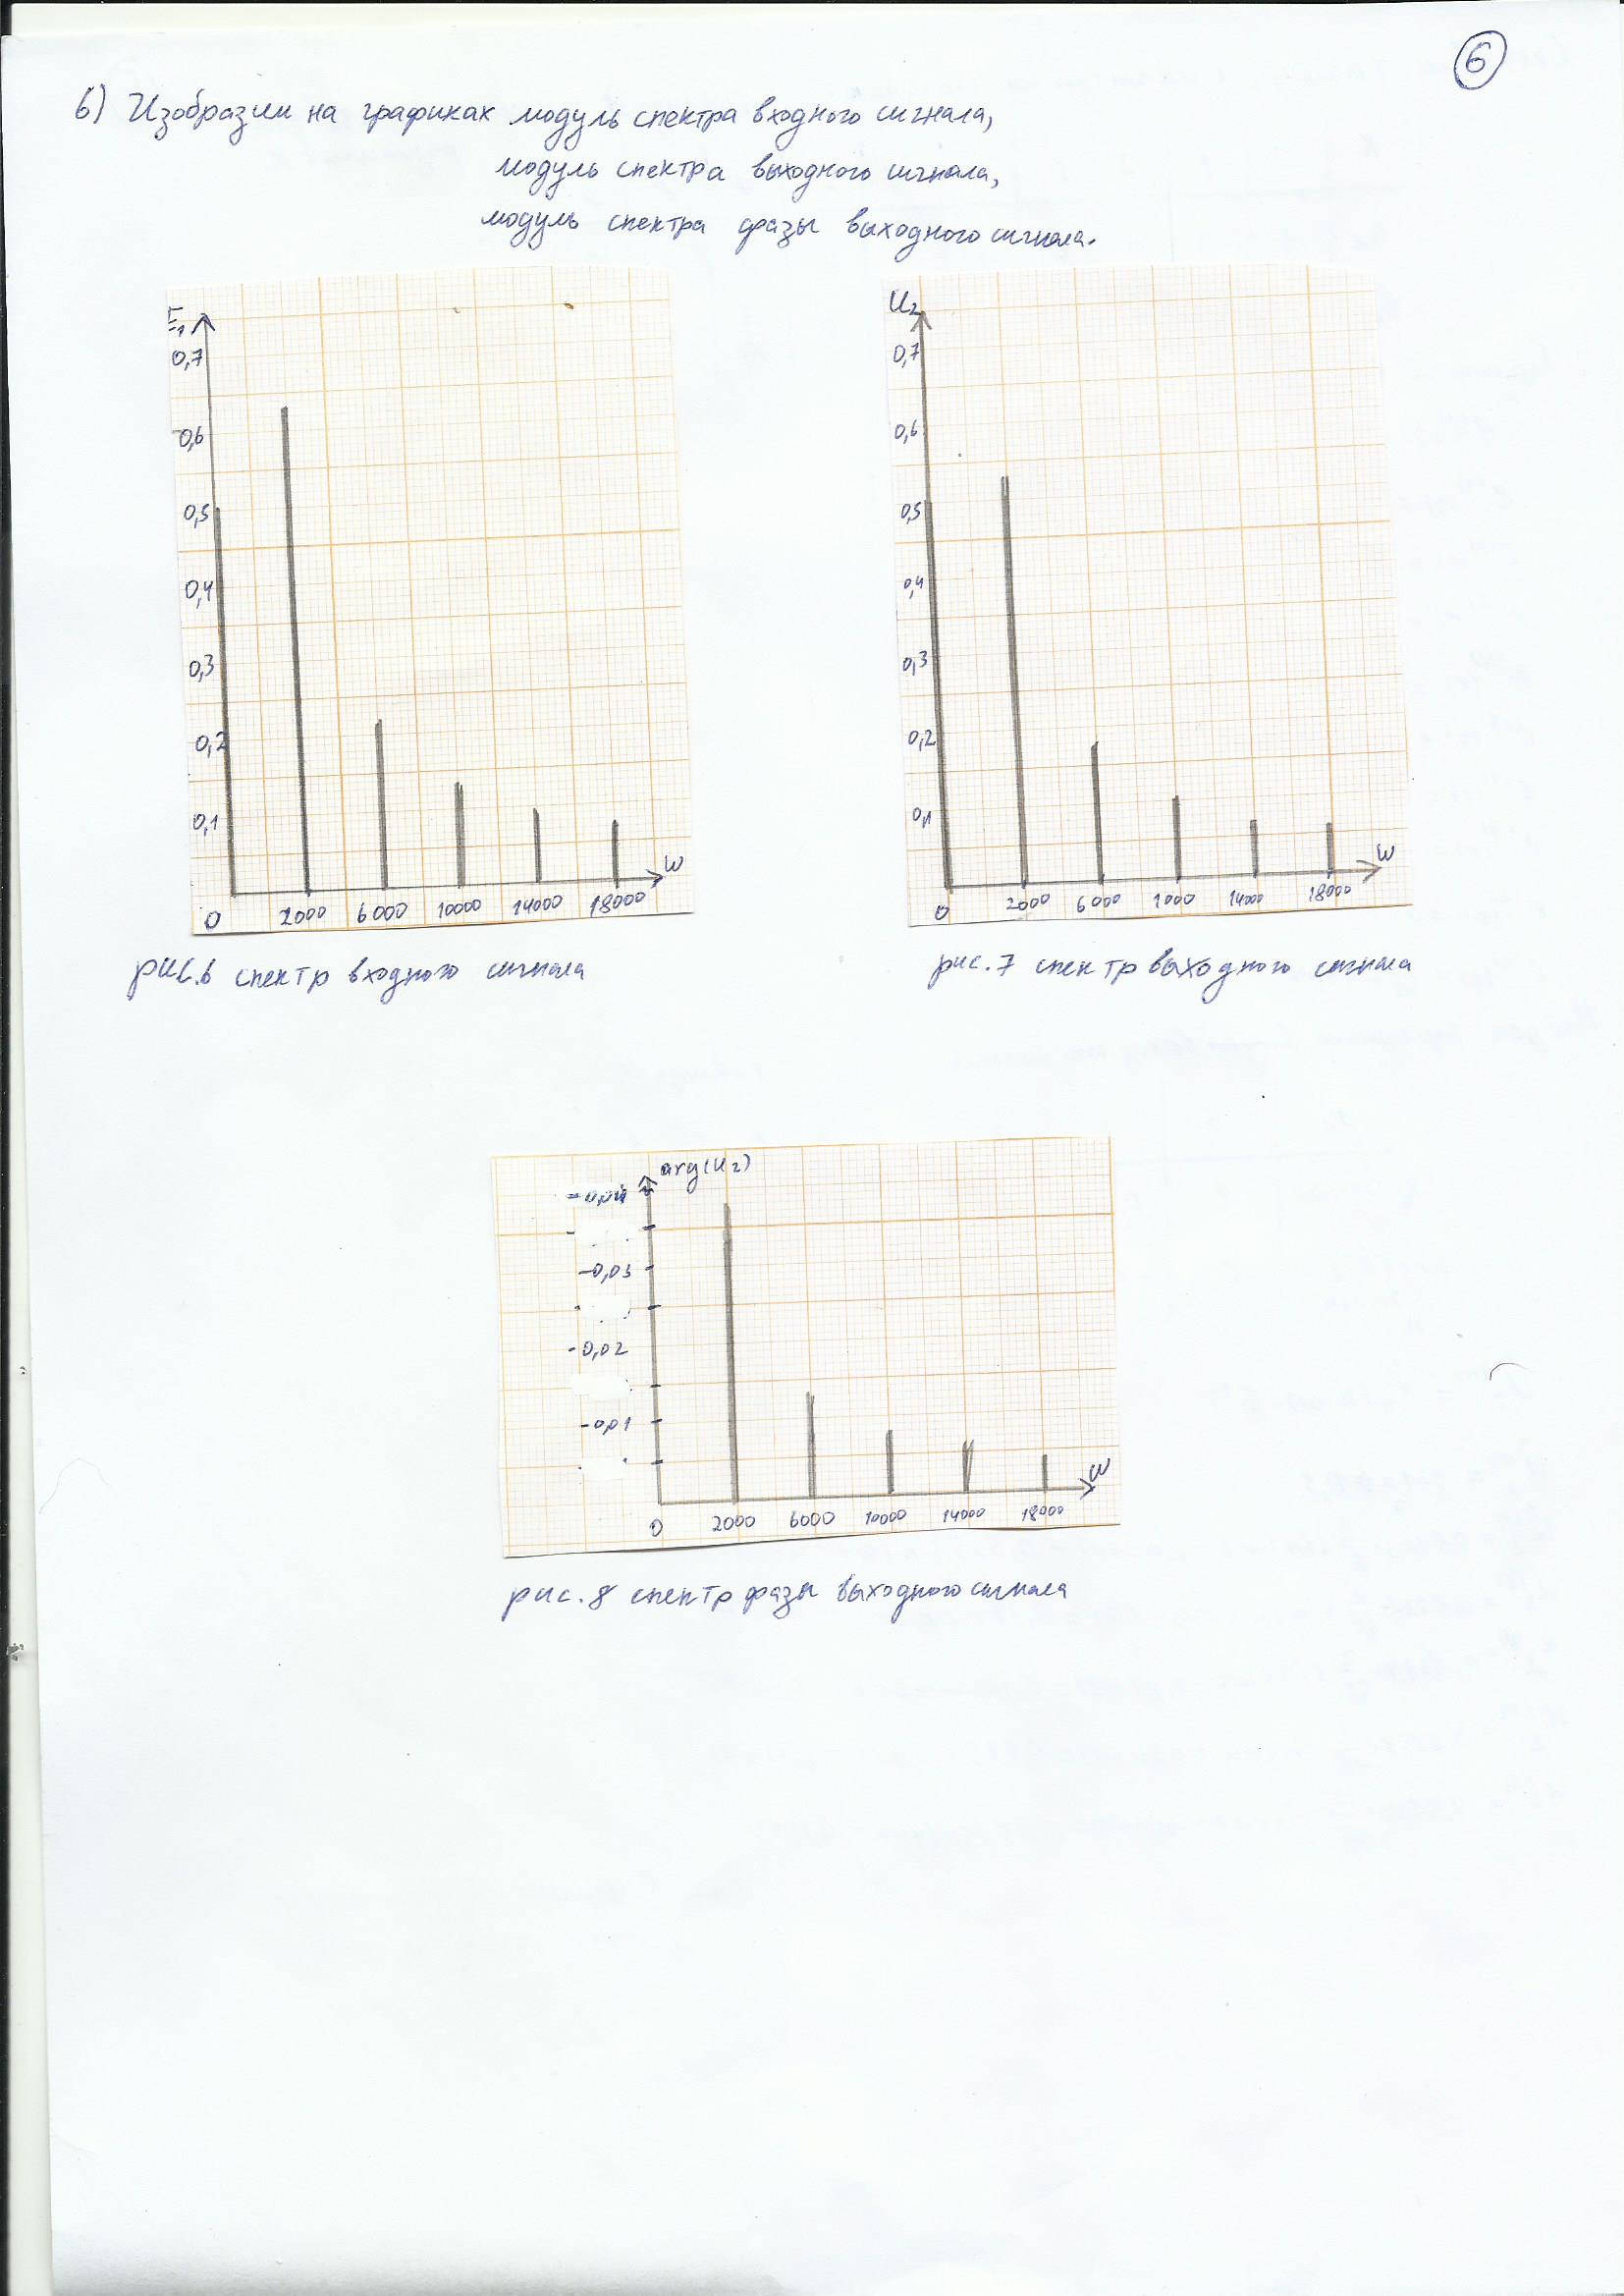 6
6) Изобразим на графиках модуль спектра входного сигнала,
модуль спектра выходного сигнала,
модуль спектра фазы выходного сигнала.
E₁
0,7
0,6
0,5
0,4
0,3
0,2
0,1
0 2000 6000 10000 14000 18000
W
рис.6 спектр входного сигнала
U₂
0,7
0,6
0,5
0,4
0,3
0,2
0,1
0 2000 6000 1000 14000 18000
W
рис.7 спектр выходного сигнала
arg(U₂)
-0,04
-0,03
-0,02
-0,01
0 2000 6000 10000 14000 18000
W
рис.8 спектр фазы выходного сигнала